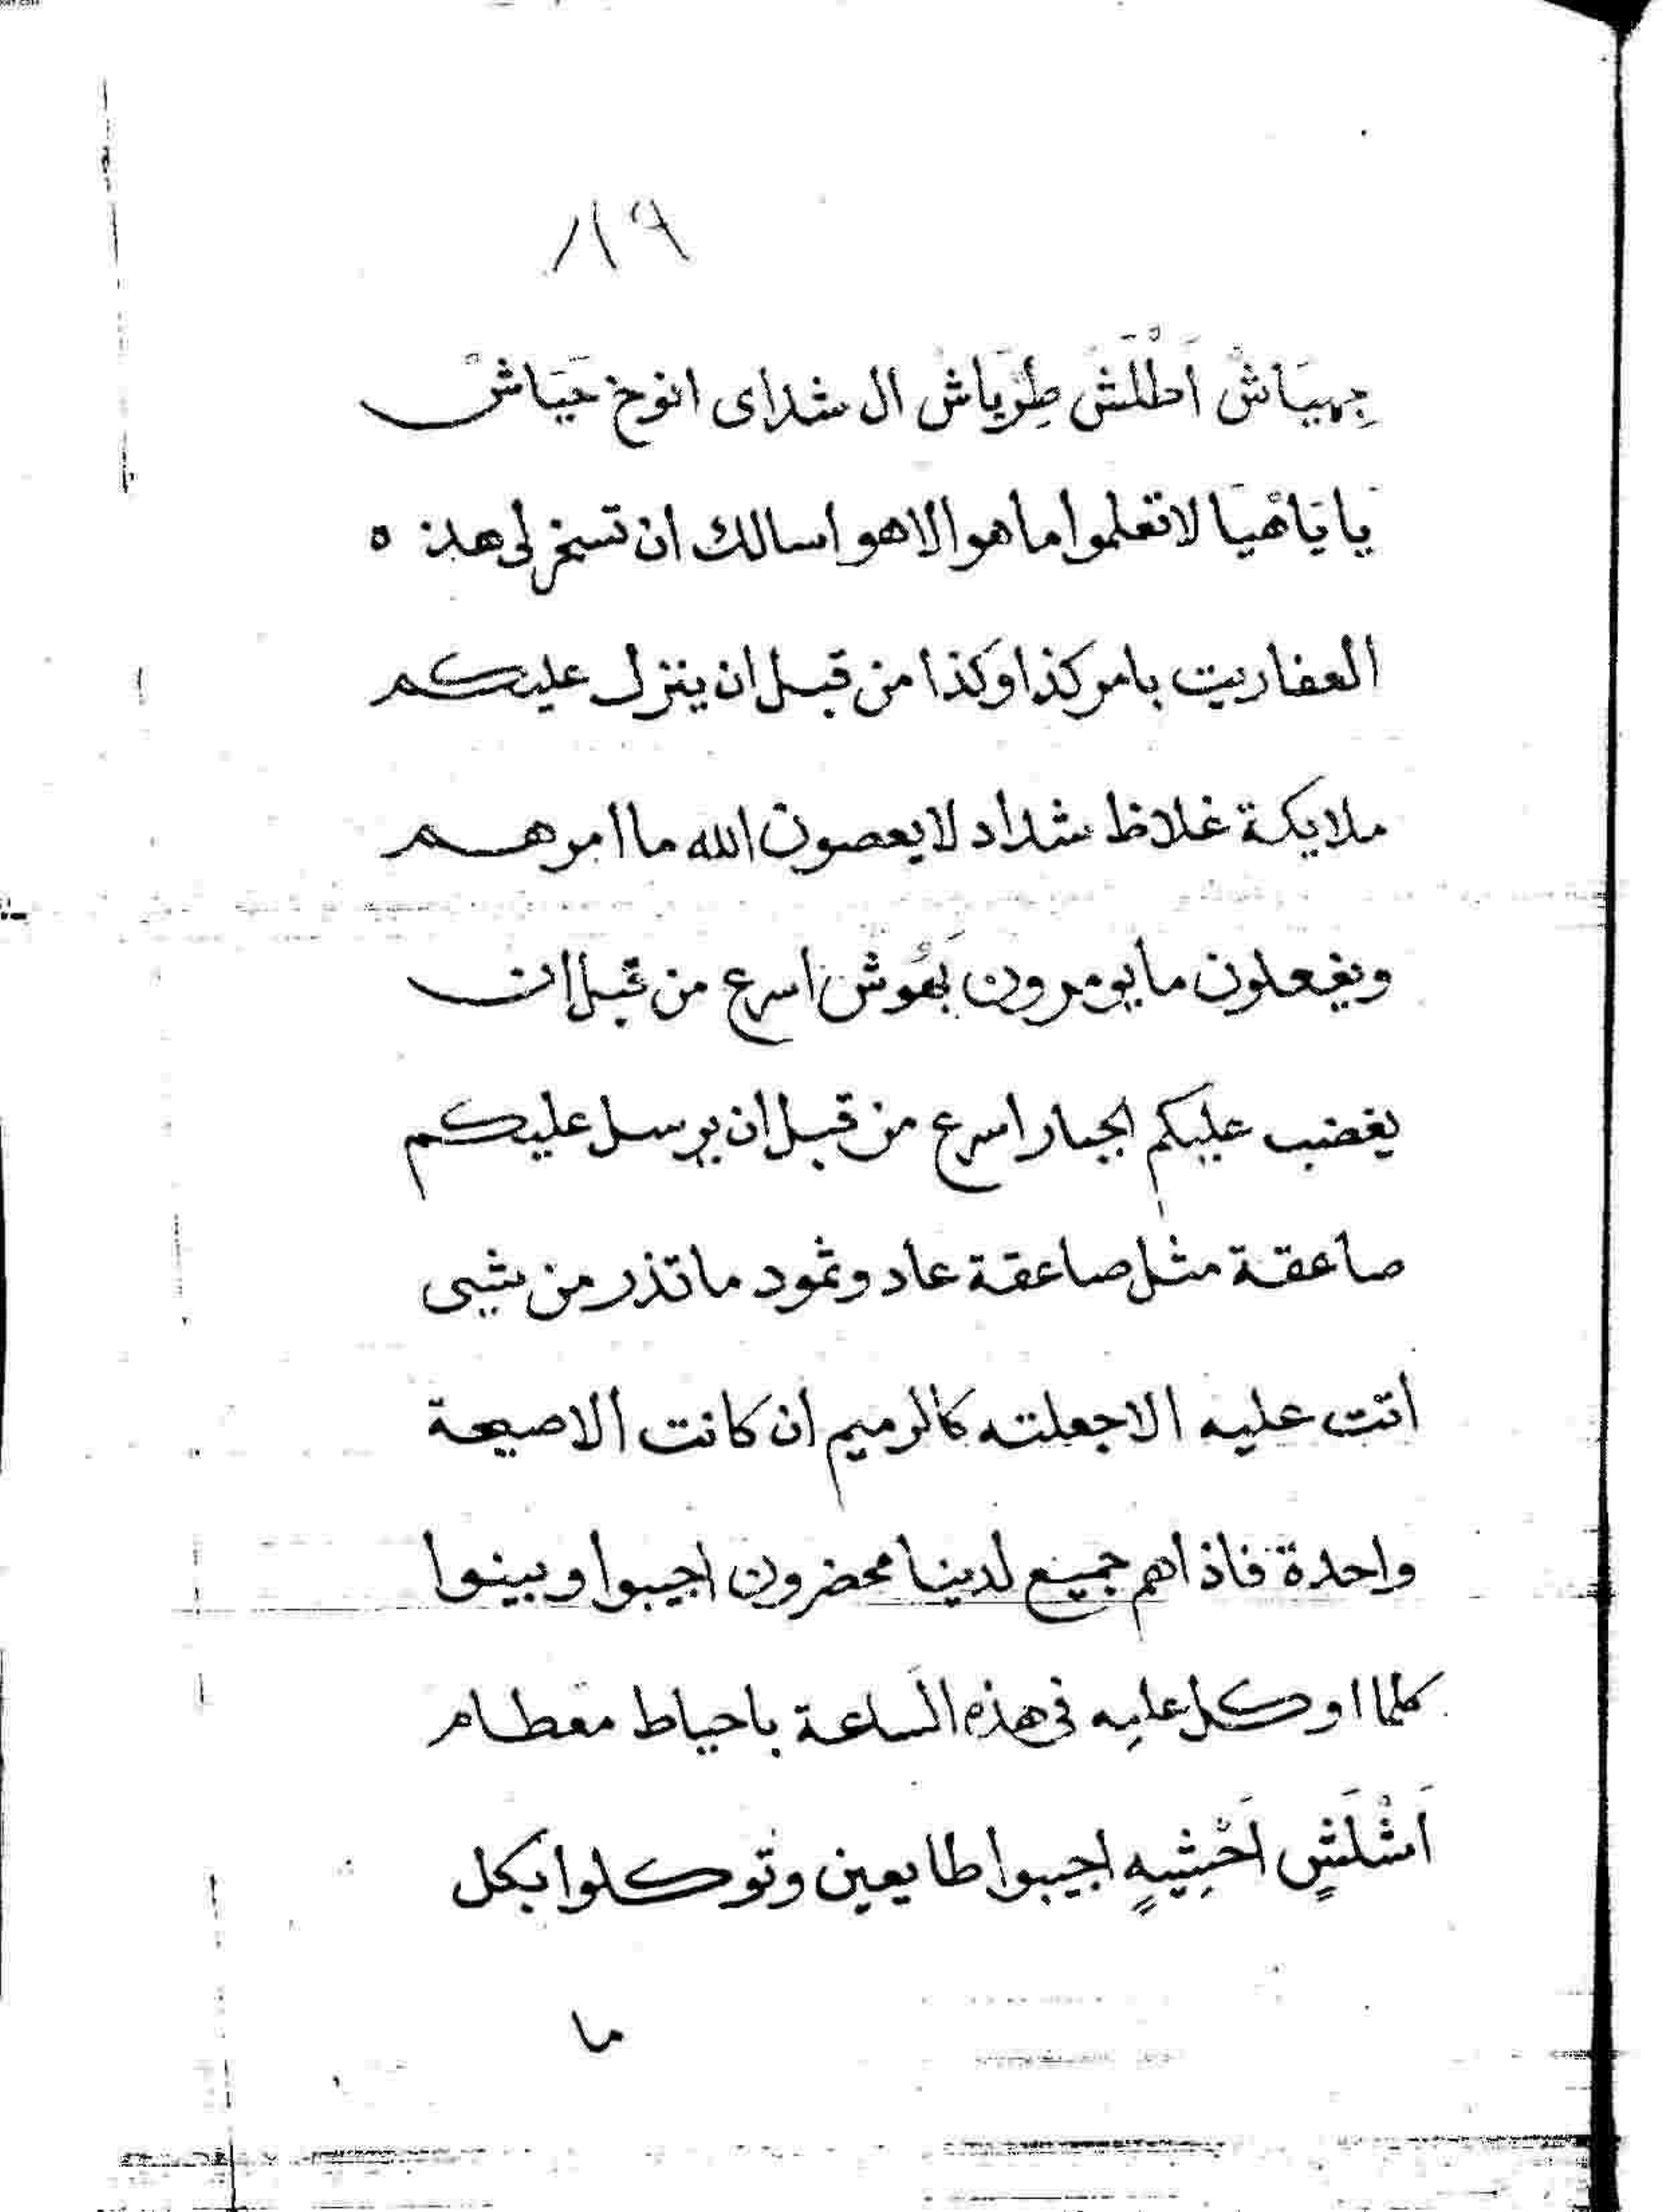 جِهيَاشْ اَطْلَش طِرْيَاش ال شداى انوخ حيَاش
يا يَاهْيَا لا تعلموا ما هو الا هو اسالك ان تسخر لى هذه
العفاريت بامر كذا وكذا من قبل ان ينزل عليكم
ملايكة غلاظ شداد لا يعصون الله ما امرهم
ويفعلون ما يومرون بَهُوش اسرع من قبل ان
يغضب عليكم الجبار اسرع من قبل ان يرسل عليكم
صاعقة مثل صاعقة عاد وثمود ما تذر من شيى
اتت عليه الا جعلته كالرميم ان كانت الا صيحة
واحدة فاذا هم جميع لدينا محضرون اجيبوا وبينوا
كلما اوكل عليه فى هذه الساعة باحياط مقطام
اَشْلَشٍ اَحْثِيهٍ اجيبوا طايعين وتوكلوا بكل
ما